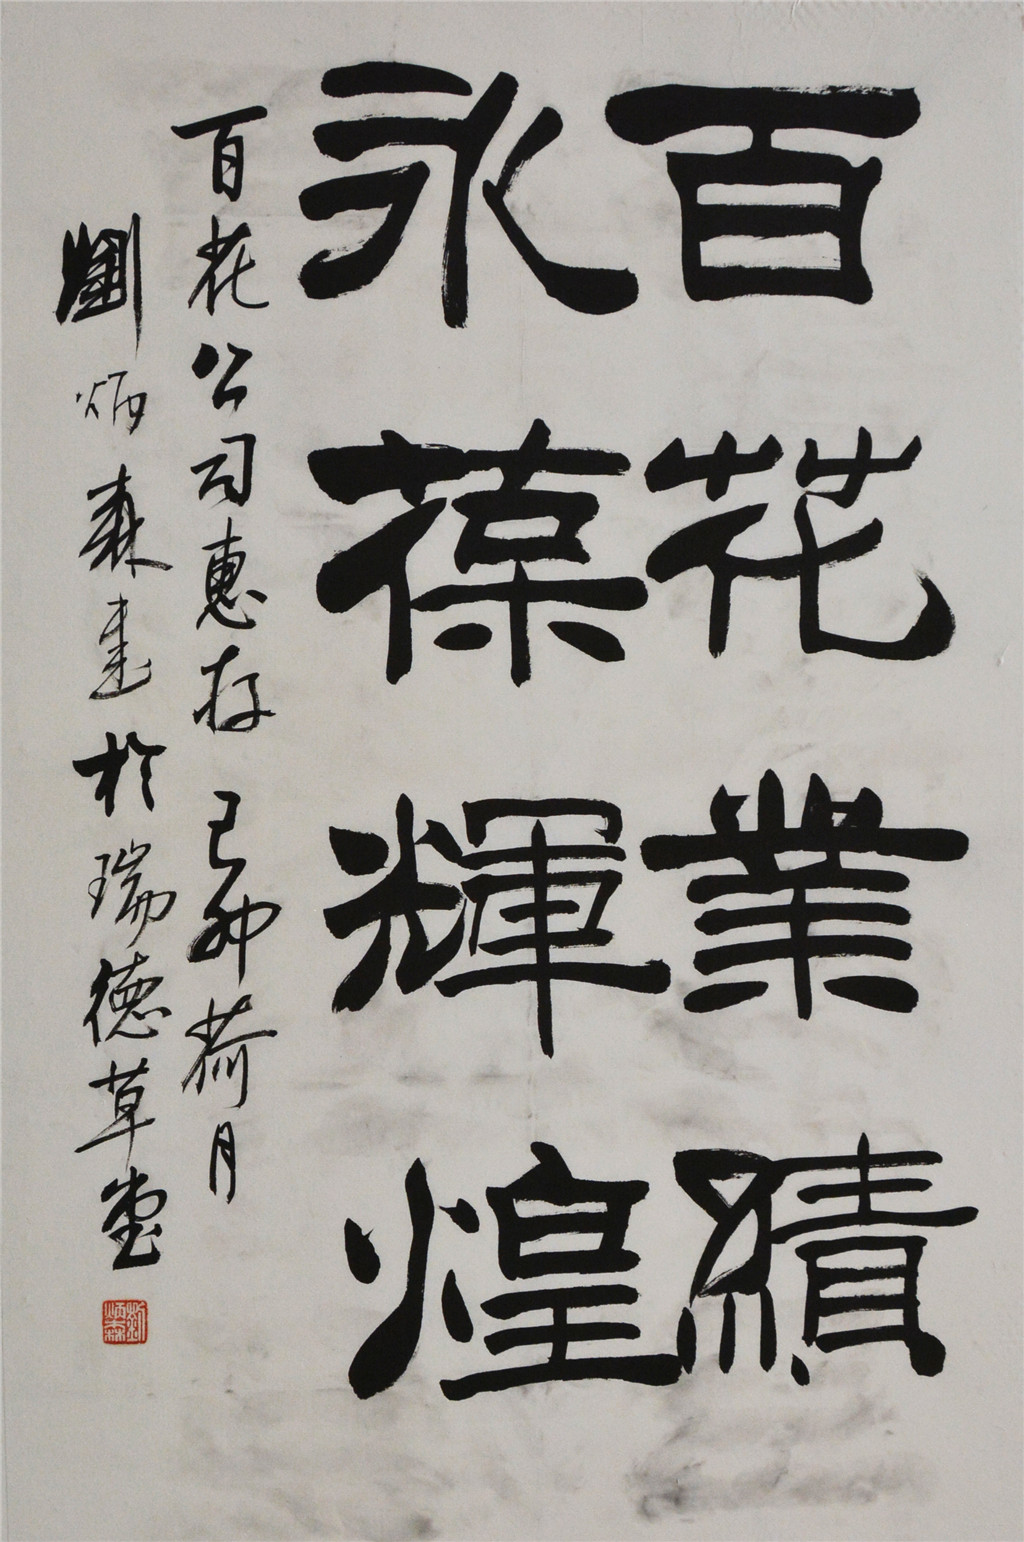 百花業績
永葆輝煌
百花公司惠存 己卯荷月
劉炳森書於瑞德草堂
劉炳森